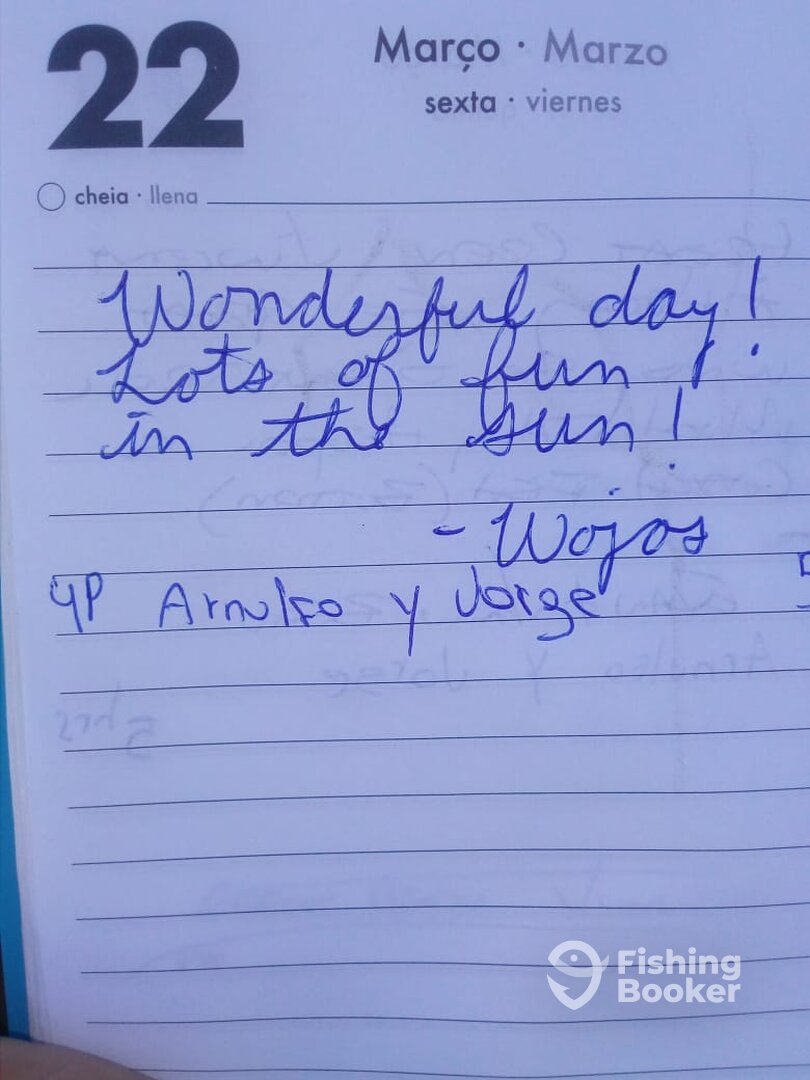 22
Março · Marzo
sexta · viernes
cheia · llena
Wonderful day!
Lots of fun!
in the sun!
- Wojos
4P Arnulfo y Jorge
5 hrs
Fishing
Booker